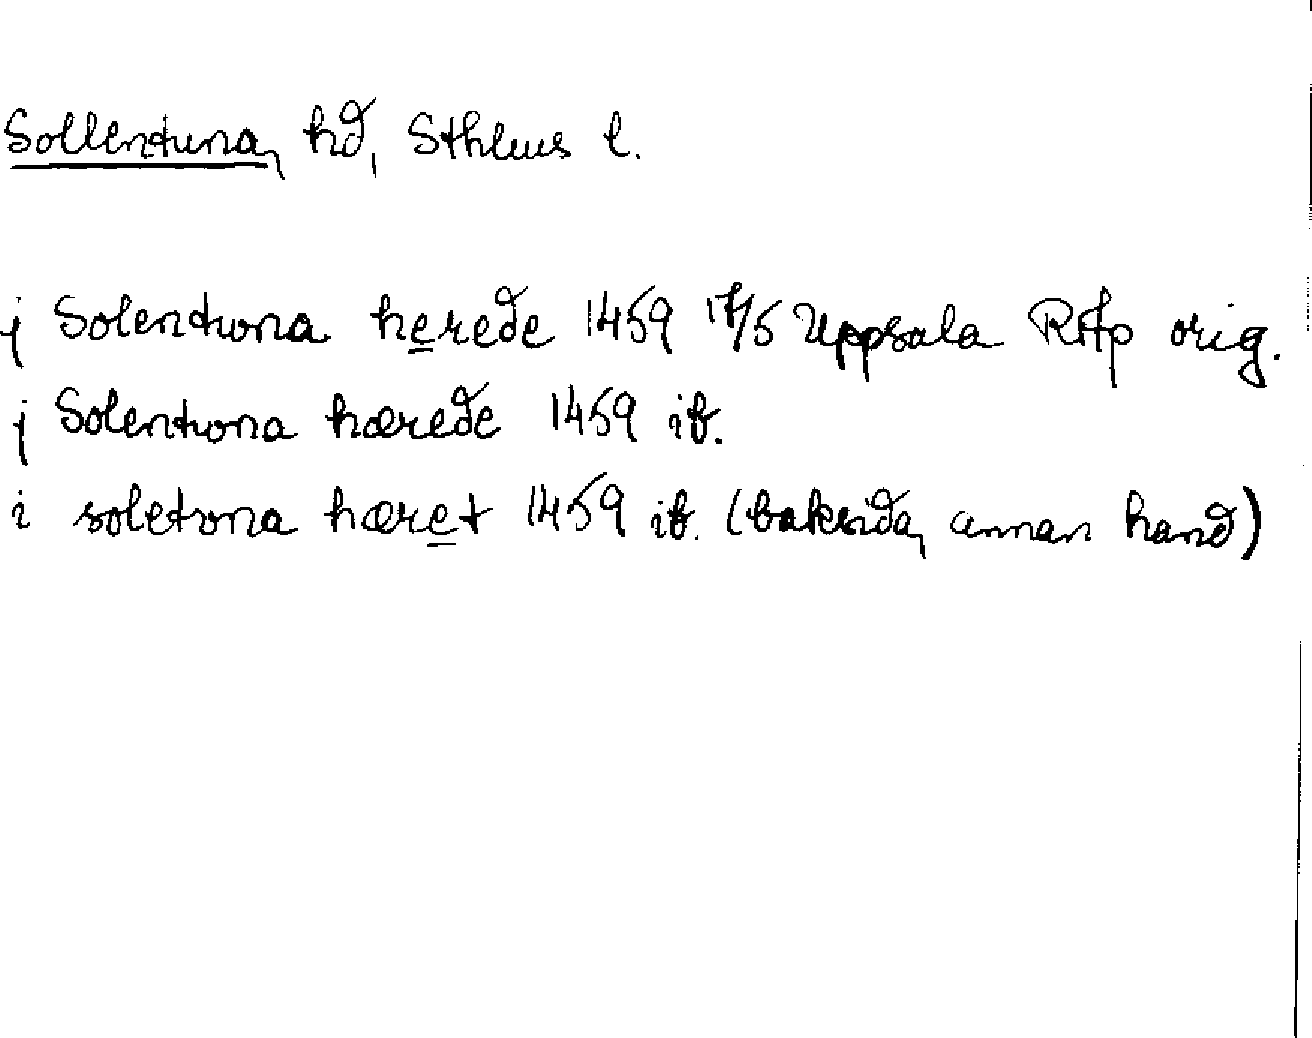 Sollentuna, hd, Sthlms l.
j Solentuna herede 1459 17/5 Uppsala RAp orig.
j Solentuna hærede 1459 ib.
i soletuna hæret 1459 ib. (baksida, annan hand)